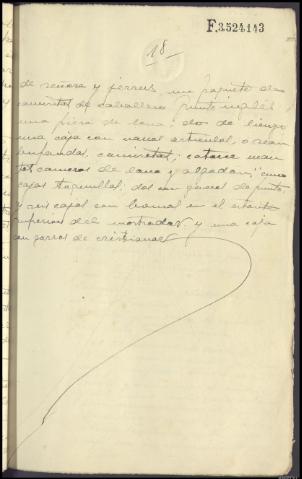 F.3.524.143
18
de señora y jerseus, un paquete de
camisetas de caballero punto inglés
una pieza de lana, dos de lienzo,
una caja con varios articulos, o sean
bufandas, camisetas; catorce man
tas cameras de lana y algodon; cinco
cajas toquillas; dos con generos de punto,
y seis cajas con en el estante
superior del mostrador y una caja
con gorros de cristianar